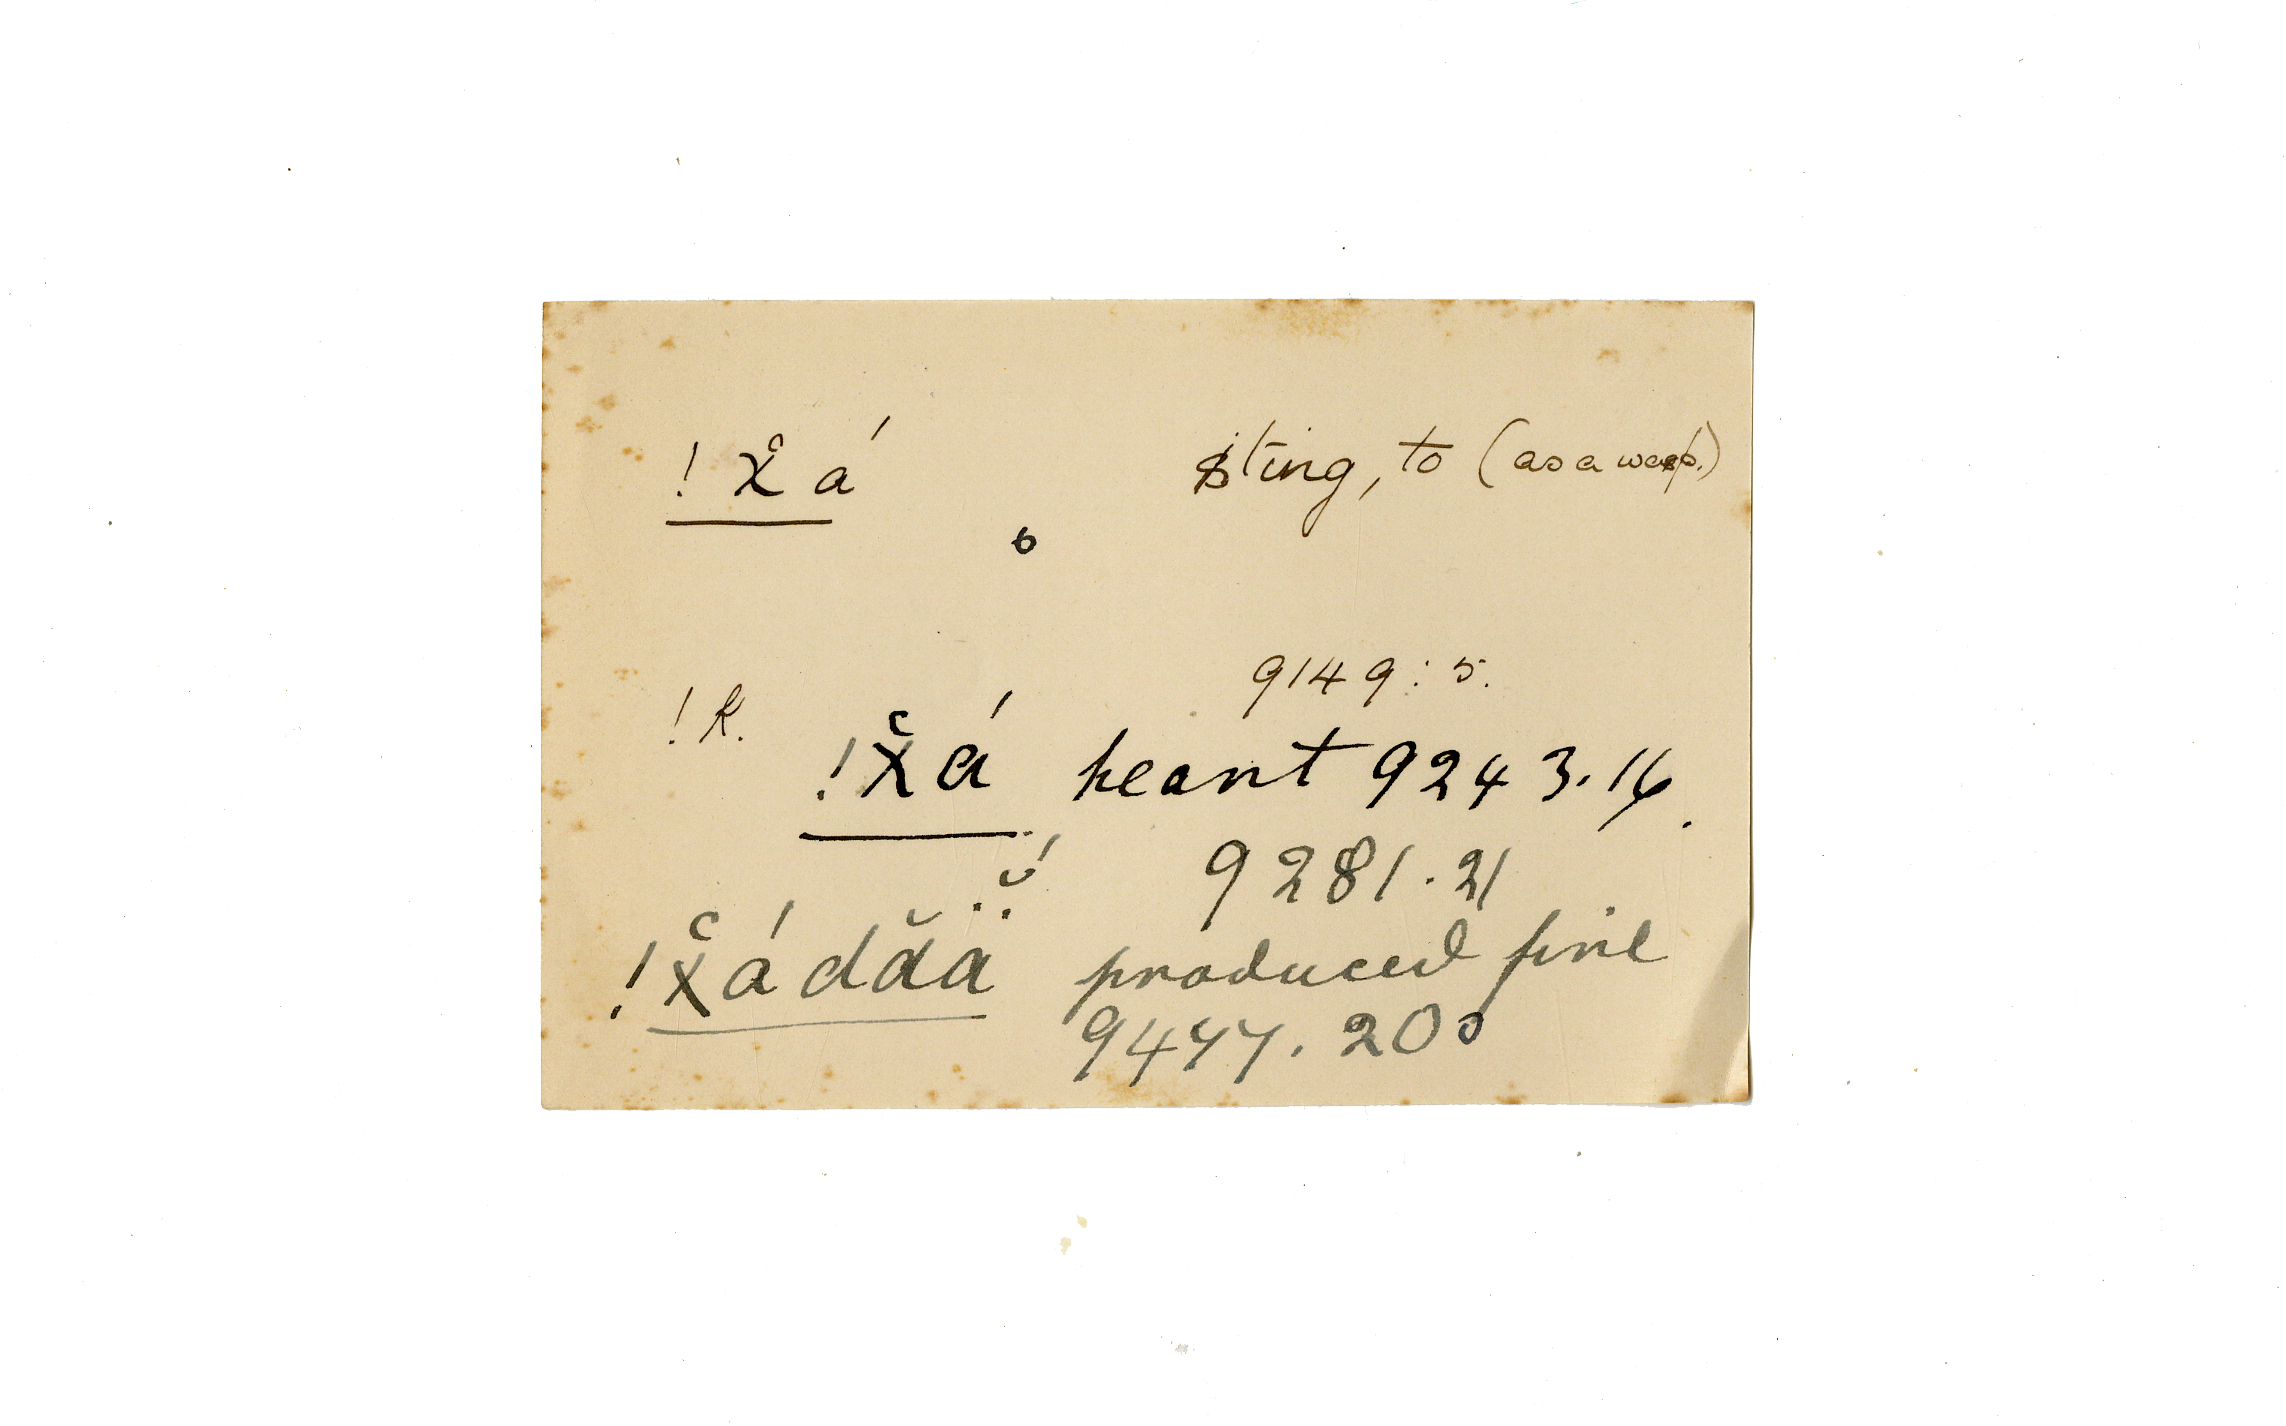 !x̔á sting, to (as a wasp.)
6
9149:5.
!k.
!x̔á heart 9243.16.
9281.21
!x̔ádăä̆́ produced fire
9477.200